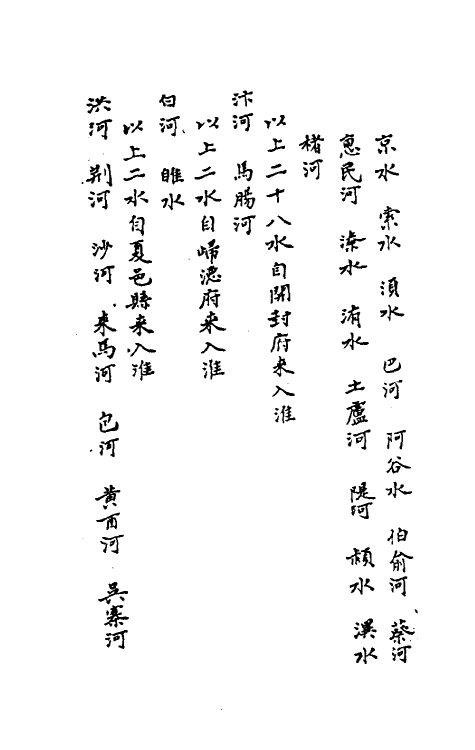 京水 索水 須水 巴河 阿谷水 伯俞河 蔡河
惠民河 溱水 洧水 土盧河 隄河 潁水 潩水
楮河
以上二十八水自開封府来入淮
汴河 馬腸河
以上二水自歸德府来入淮
白河 睢水
以上二水自夏邑縣来入淮
洪河 荆河 沙河 来馬河 包河 黄酉河 吳寨河